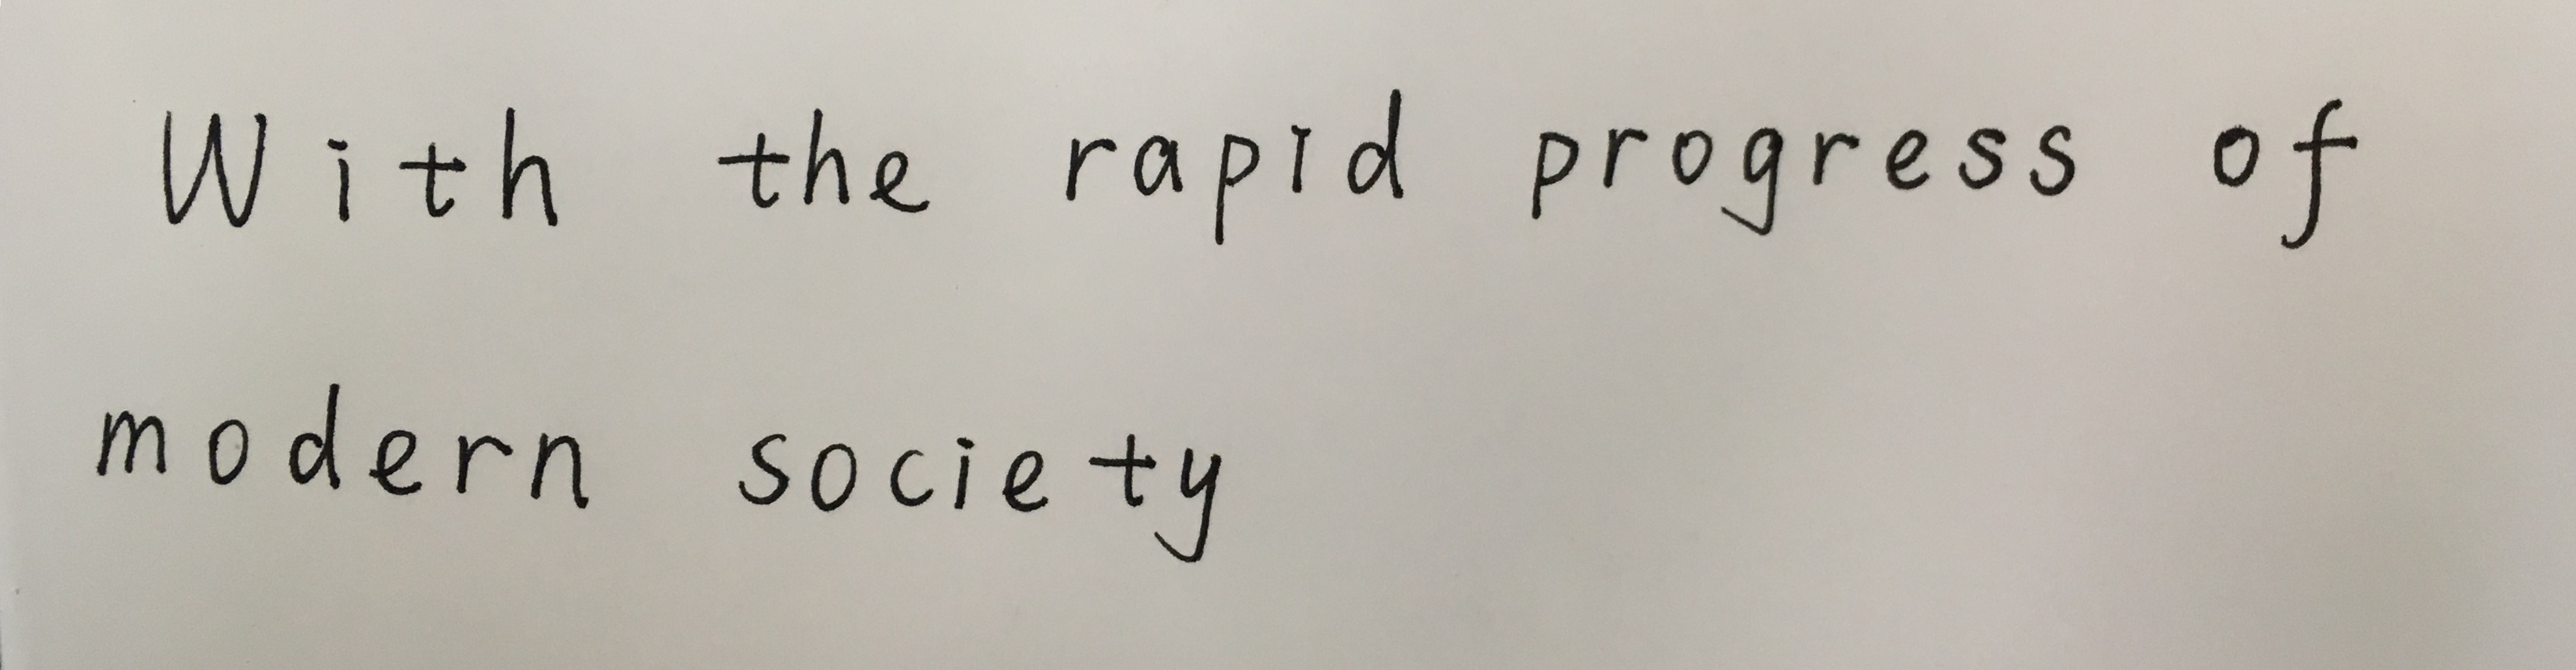 With the rapid progress of
modern society